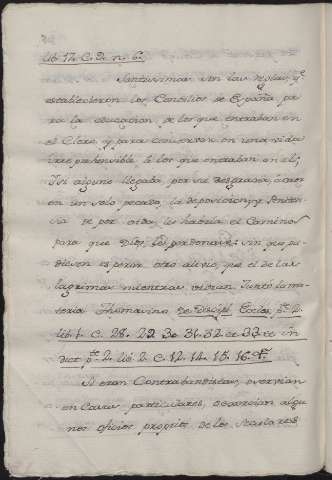 lib. 17. C. 2. n. 6.
Santissimas son las reglas, q.e
establecieron los Concilios de España pa
ra la educacion de los que entraban en
el Clero, y para conservar en una vida
irreprehensible a los que entraban en el;
Y si alguno llegaba por su desgracia, a caer
en un solo pecado, la deposicion, y Peniten
cia de por vida, les habria el Camino
para que Dios los perdonase, sin que pu
diesen esperar otro alivio, que el de las
lagrimas mientras vivian. Juntó la ma
teria Thomasino de Discipl. Eccles. p.e 2.
lib. 1. C. 28. 22. 30. 31. 32 et 33 et in
dict p.te 2. lib. 2. C. 12. 14. 15. 16. &.a
Si eran Contrabandistas, o servian
en Casas particulares, o exercian algu
nos oficios propios de los Seculares